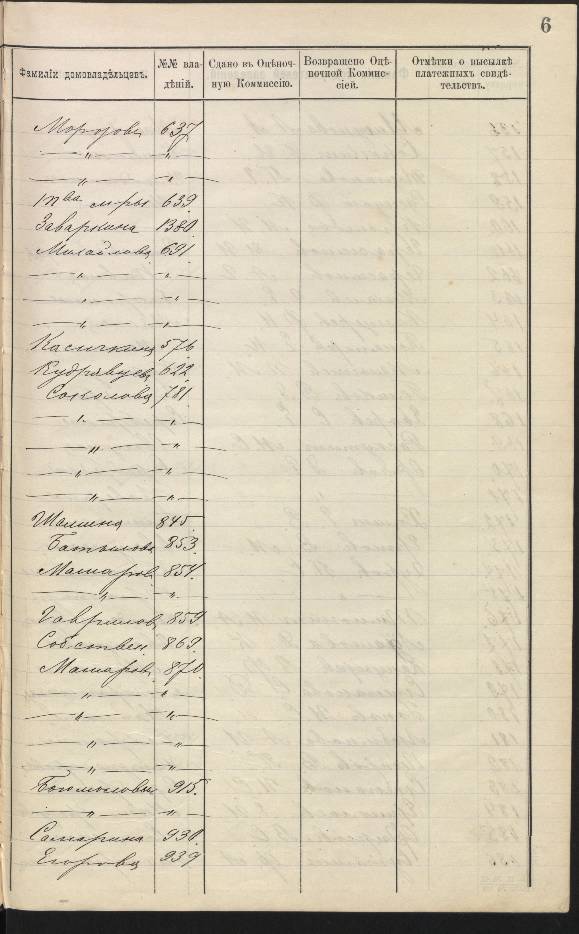 6
Фамиліи домовладѣльцевъ. №№ вла-дѣній. Сдано въ Оцѣноч-ную Коммиссію. Возвращено Оцѣ-почной Коммис-сіей. Отмѣтки о высылкѣ платежныхъ свидѣ-тельствъ.
Морозовъ 637
— „ — — „ —
— „ — — „ —
Т-ва м-ры 639
Заваркина 1380.
Михайлова 691
— „ — — „ —
— „ — — „ —
— „ — — „ —
Касичкина 576
Кудрявцева 622
Соколова 781
— „ — — „ —
— „ — — „ —
— „ — — „ —
— „ — — „ —
Шашина 845.
853.
Машаровъ 854.
— „ — — „ —
Гавриловъ 859
Собствен. 869.
Машаровъ 870.
— „ — — „ —
— „ — — „ —
— „ — — „ —
— „ — — „ —
915.
— „ — — „ —
Самарина 930.
Егорова 939